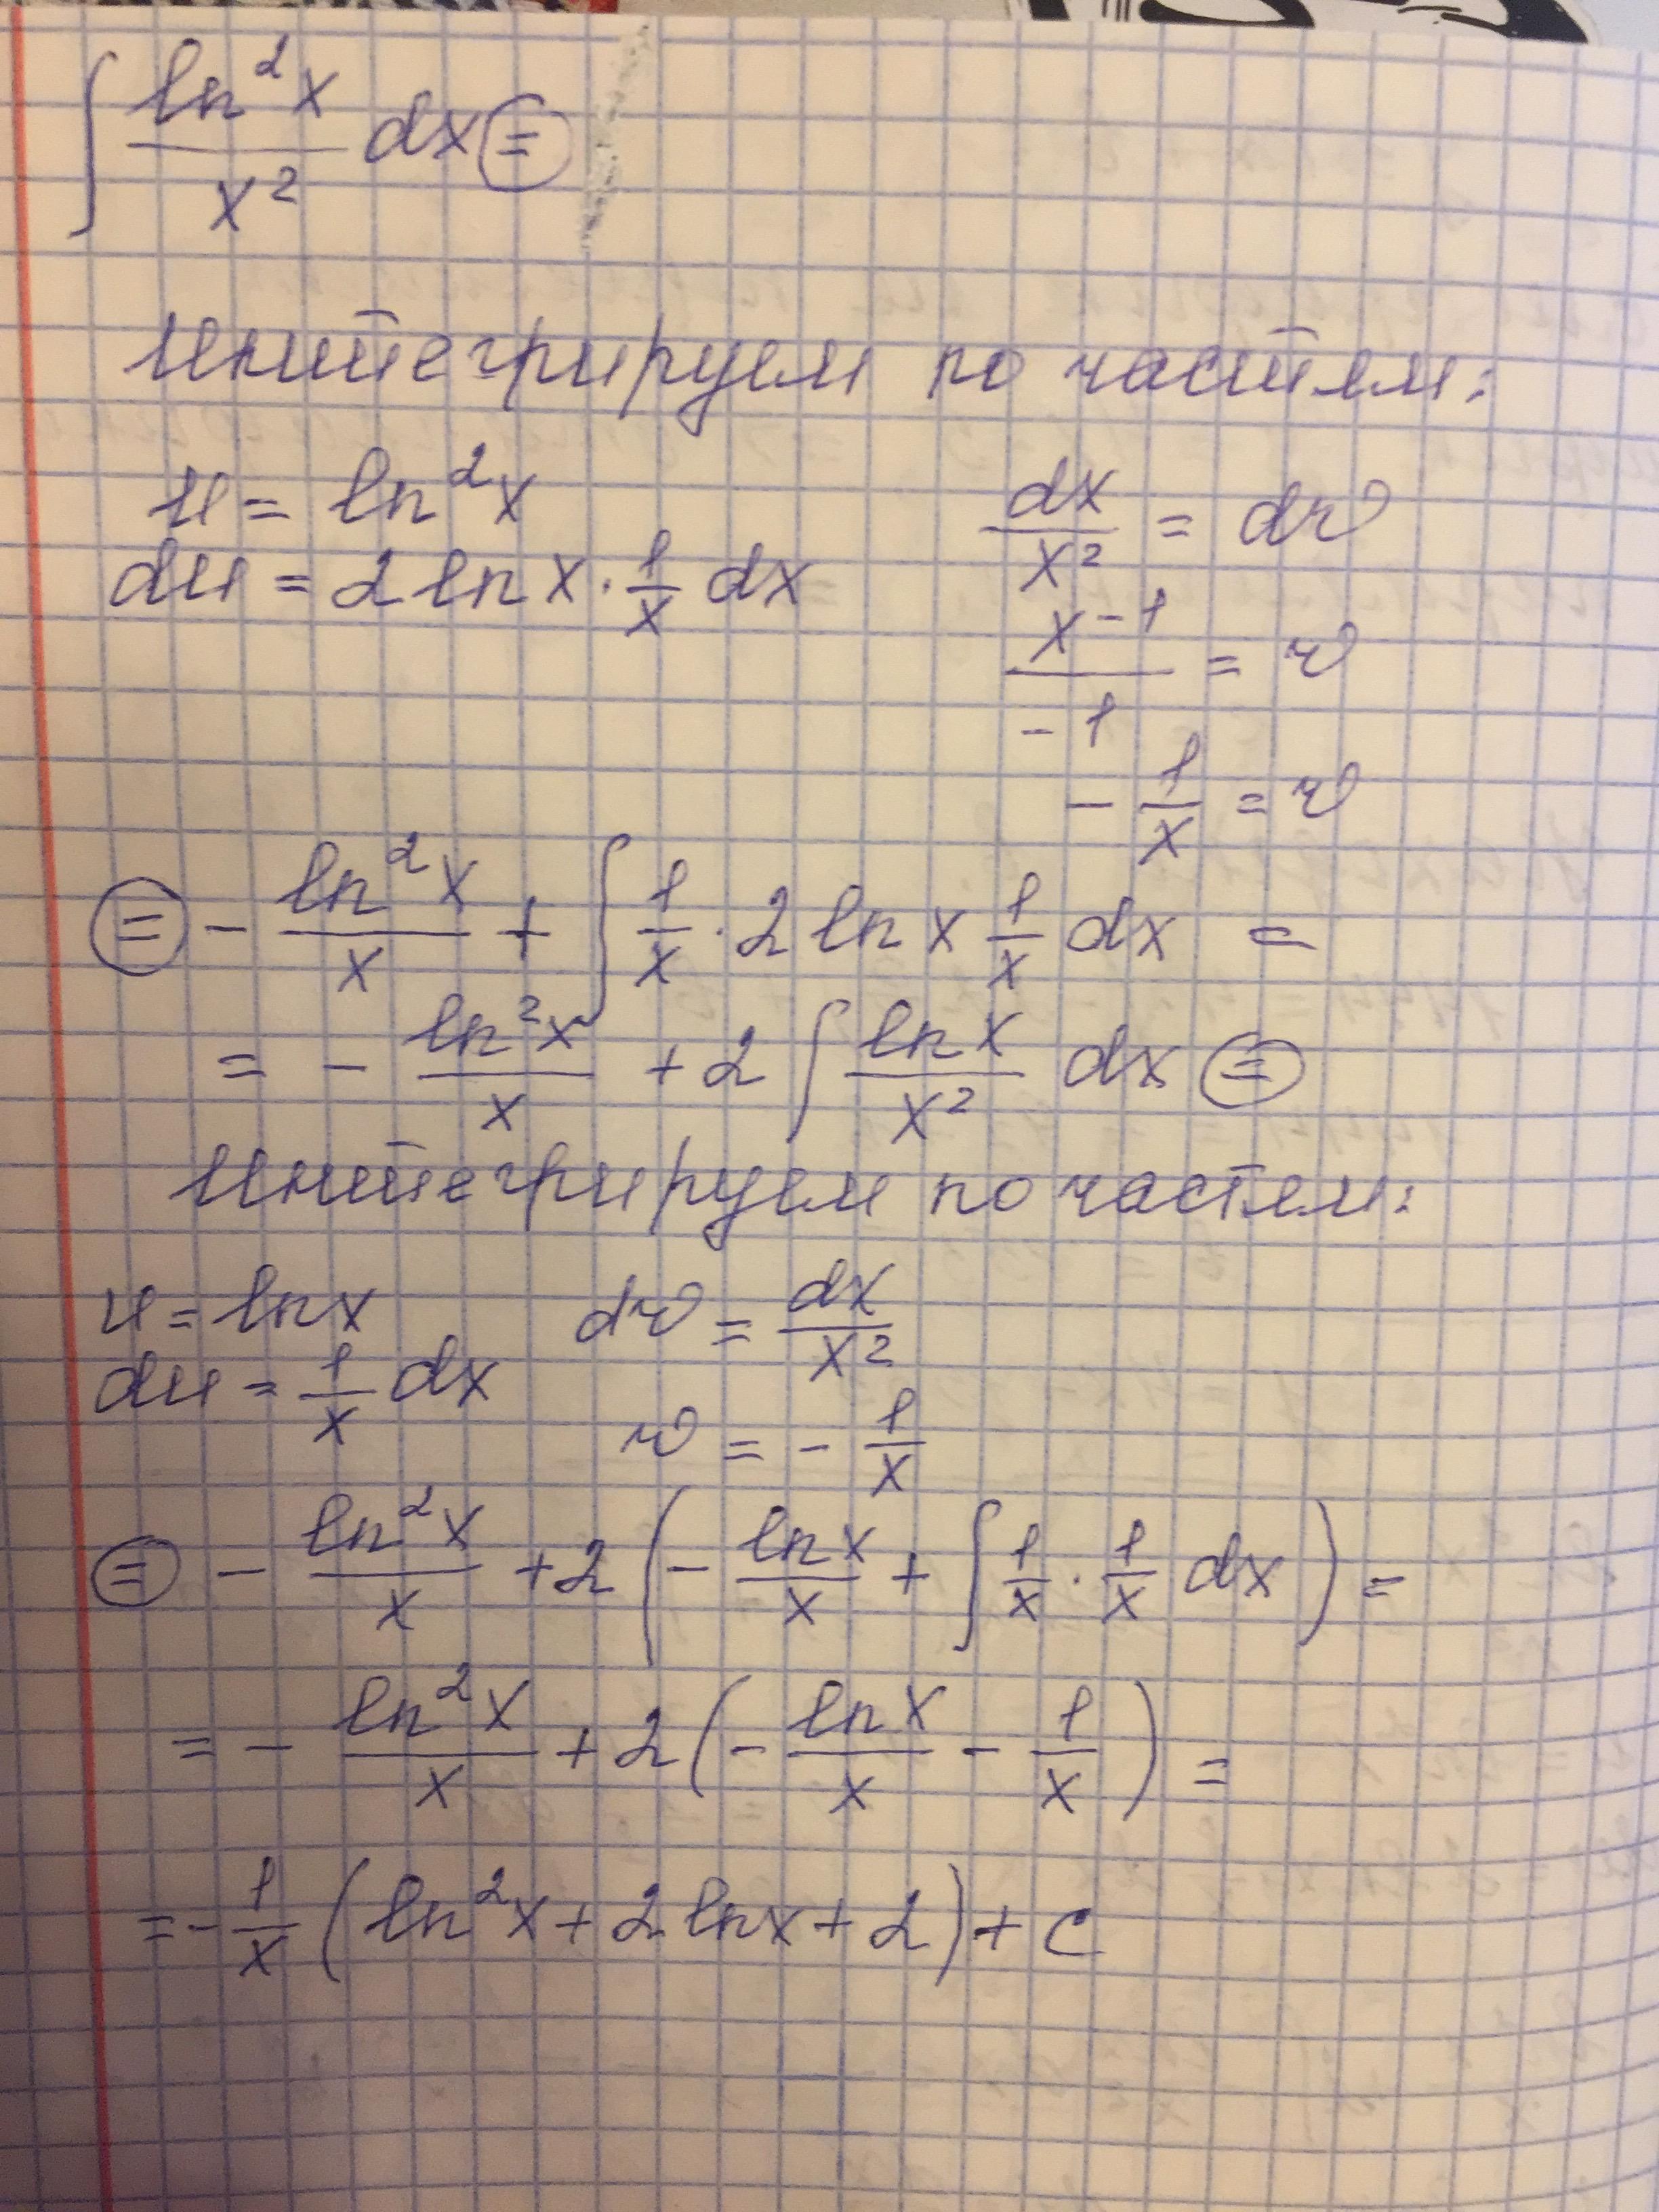 ∫ ln²x/x² dx =
Интегрируем по частям:
u = ln²x dx/x² = dv
du = 2 ln x · 1/x dx x⁻¹/-1 = v
- 1/x = v
= - ln²x/x + ∫ 1/x · 2 ln x 1/x dx =
= - ln²x/x + 2 ∫ ln x/x² dx =
Интегрируем по частям:
u = ln x dv = dx/x²
du = 1/x dx v = - 1/x
= - ln²x/x + 2 (- ln x/x + ∫ 1/x · 1/x dx) =
= - ln²x/x + 2 (- ln x/x - 1/x) =
= - 1/x (ln²x + 2 ln x + 2) + C